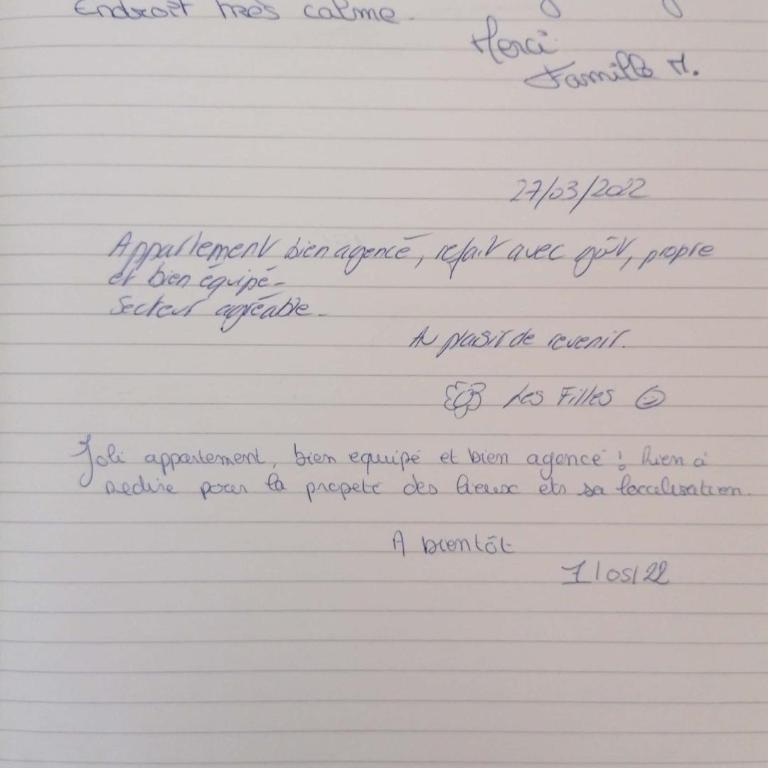 Endroit très calme.
Merci
Famille M.
27/03/2022
Appartement bien agencé, refait avec goût, propre
et bien équipé.
Secteur agréable.
Au plaisir de revenir.
Les Filles
Joli appartement, bien equipé et bien agencé ! Rien à
redire pour la propeté des lieux et sa localisation.
A bientôt
1/05/22